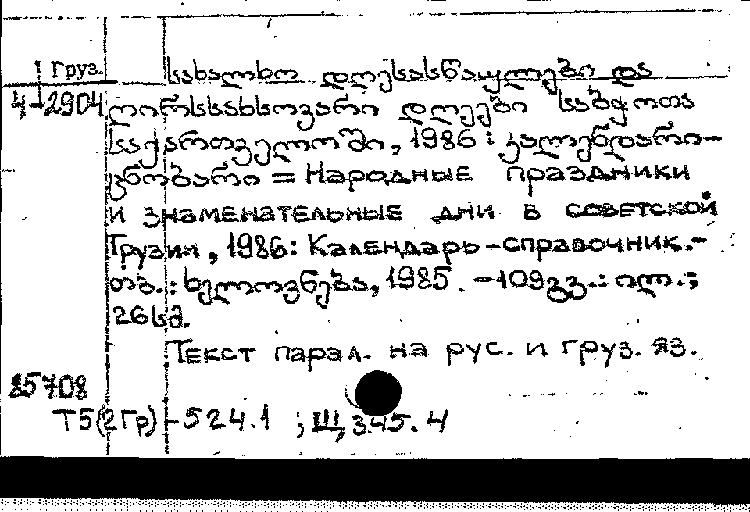 Груз.
სახალხო დღესასწაულები და
4-2904 ღირსსახსოვარი დღეები საბჭოთა
საქართველოში, 1986 : კალენდარი-
ცნობარი = Народные праздники
и знаменательные дни в советской
Грузии, 1986: Календарь-справочник.-
თბ.: ხელოვნება, 1985. -109გვ.: ილ.;
26სმ.
Текст парал. на рус. и груз. яз.
85708
Т5(2Гр)-524.1 ; Щ,345.4